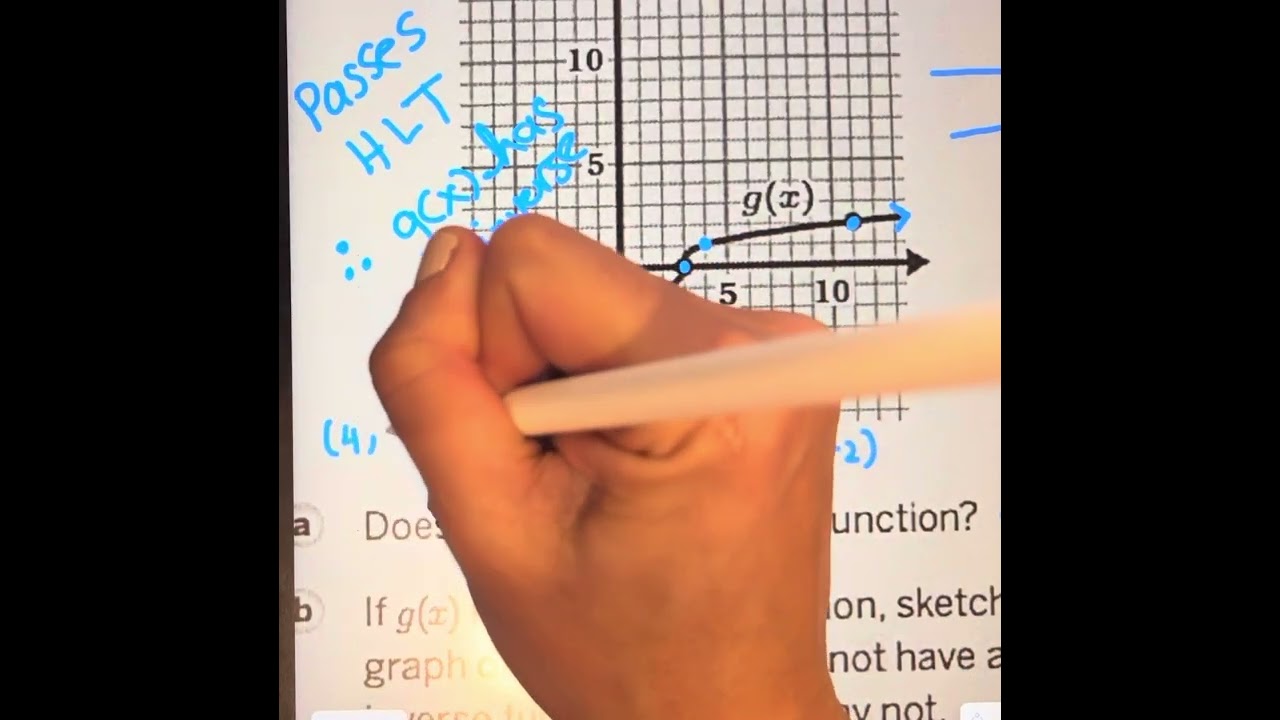 Passes
HLT
10
∴ g(x) has
5
g(x)
5 10
(4, -2)
a Does unction?
b If g(x) ion, sketch
graph not have a
not.